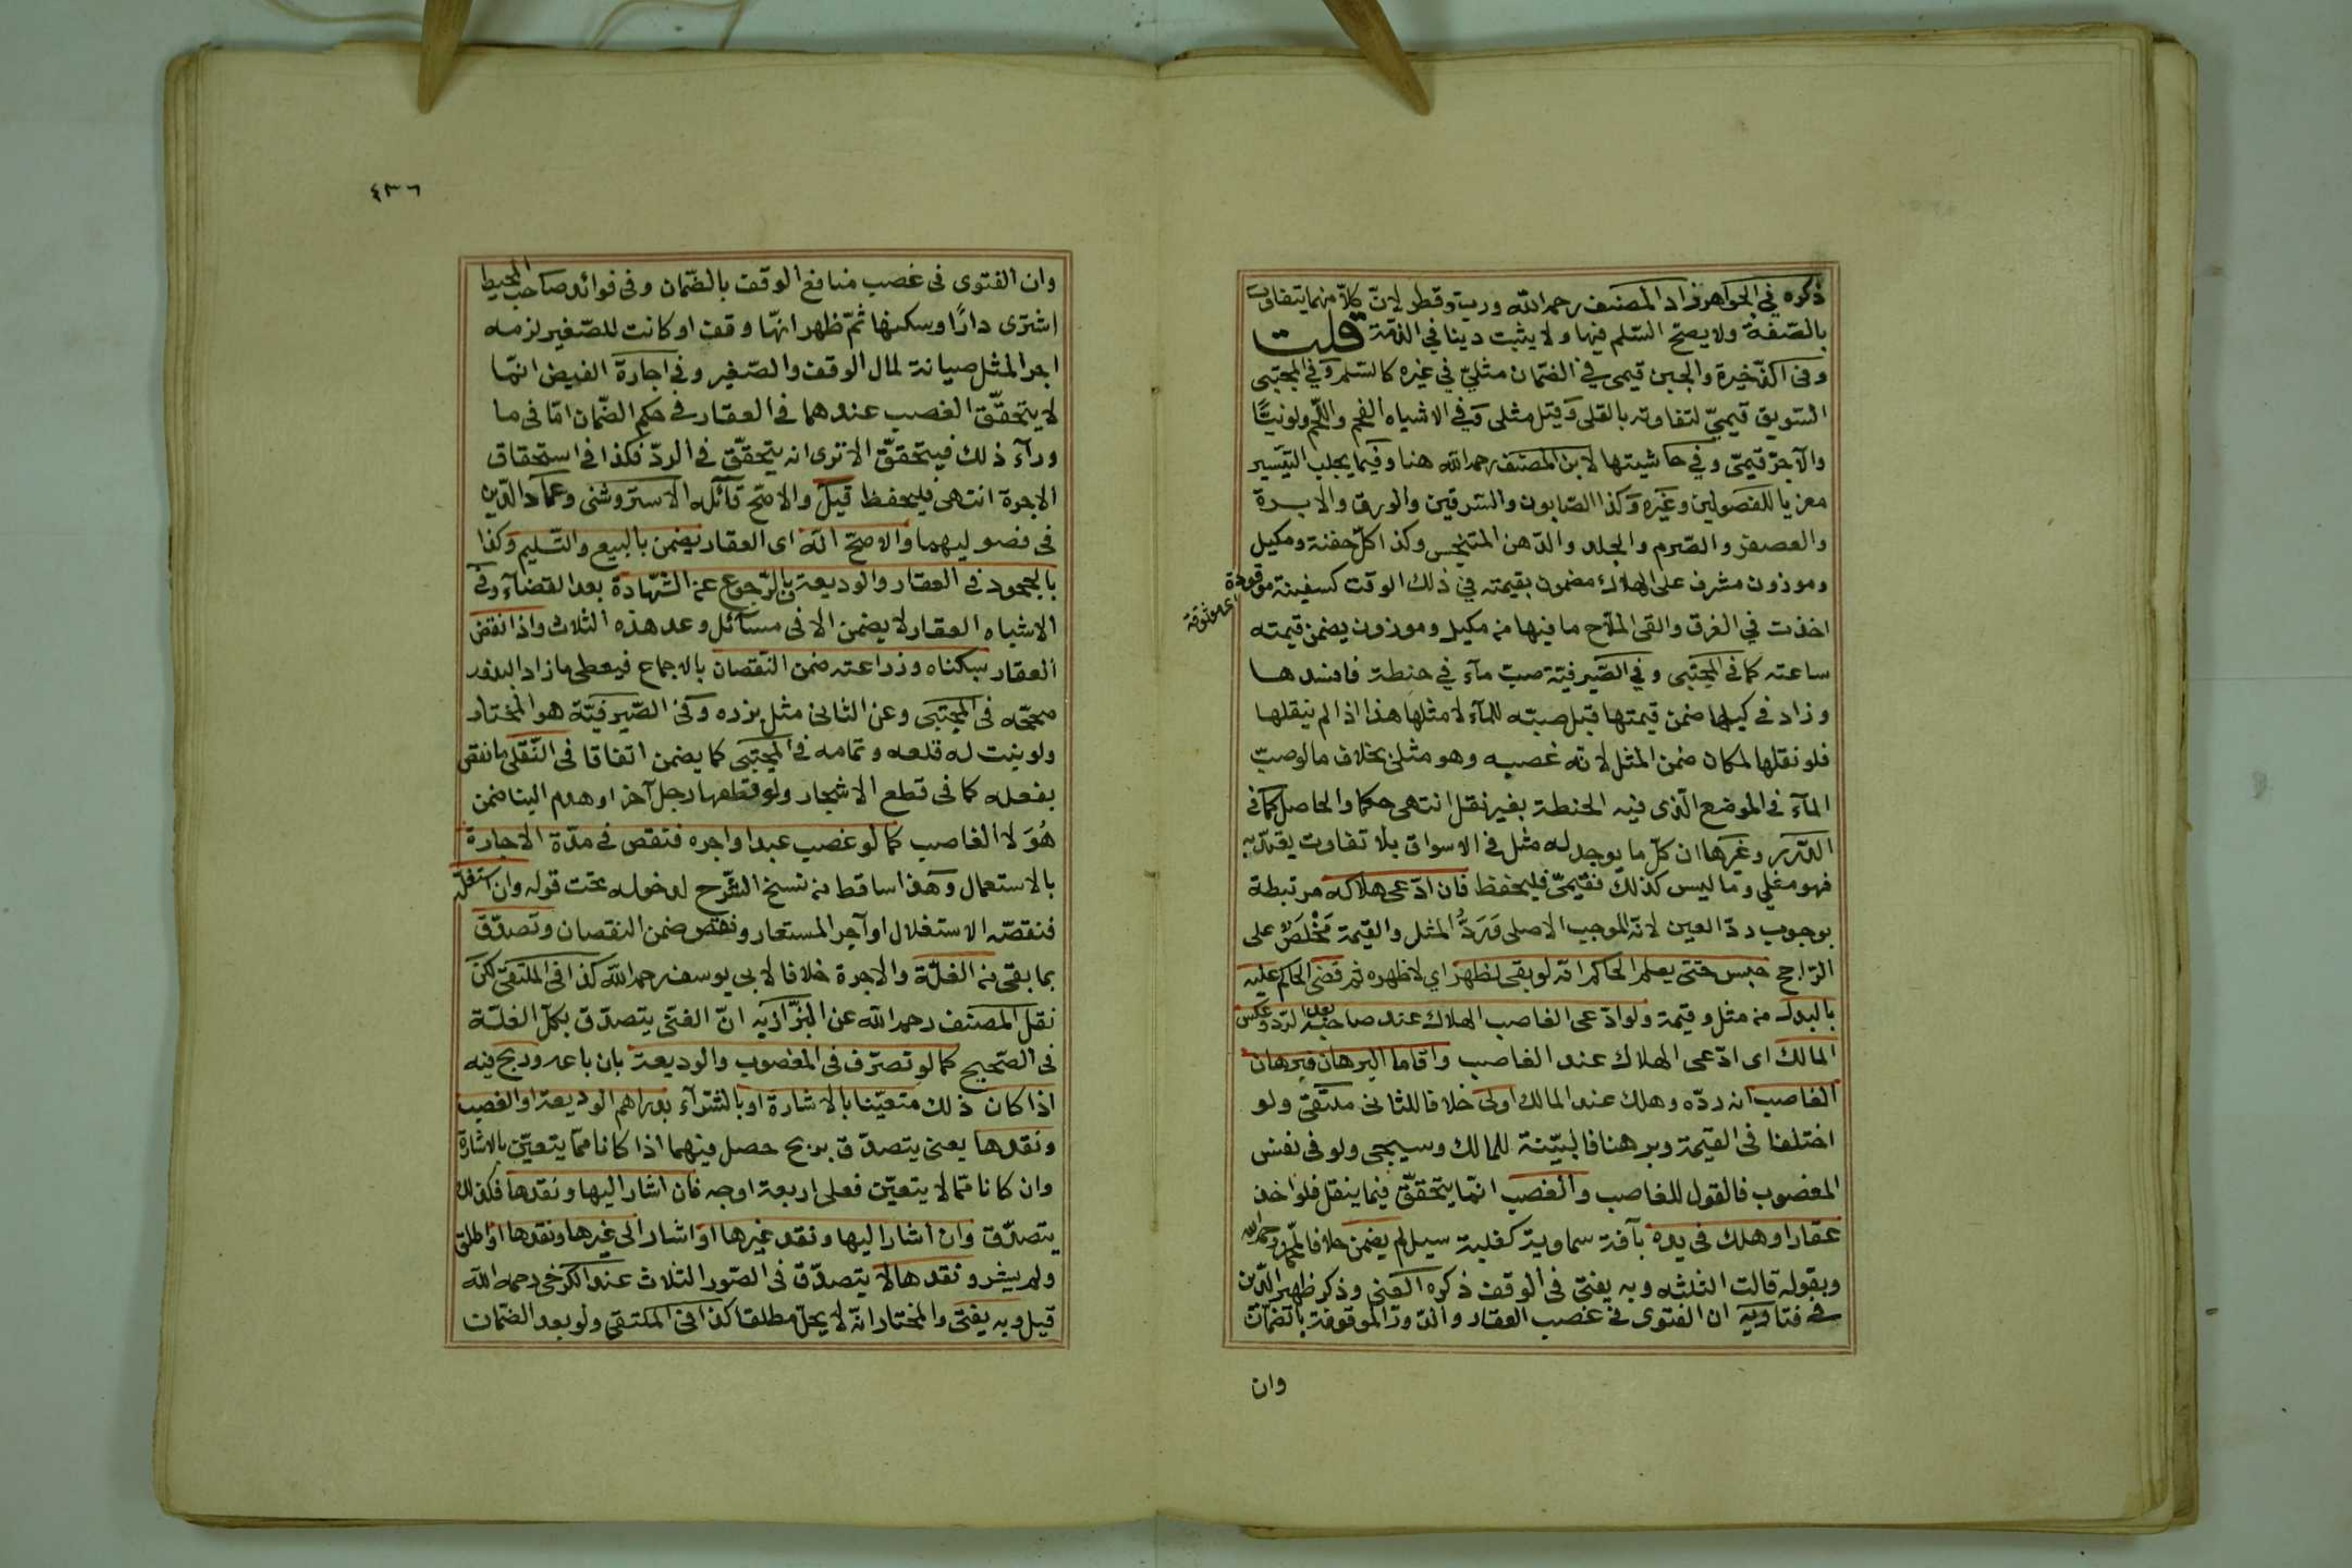 ذكره في الجواهر زاد المصنف رحمه الله ورب وقطر لان كلا منهما يتفاوت
بالصفة ولا يصح السلم فيها ولا يثبت دينا في الذمة قلت
وفى الذخيرة والجبن قيمى في الضمان مثلي في غيره كالسلم وفي المجتبى
السويق قيمي لتفاوته بالقلى وقيل مثلى وفي الاشباه الفحم واللحم ولو نيئا
والآجر قيمى وفي حاشيتها لابن المصنف رحمه الله هنا وفيما يجلب التيسير
معزيا للفصولين وغيره وكذا الصابون والسرقين والورق والابرة
والعصفر والصرم والجلد والدهن المتنجس وكذا كل حفنة ومكيل
وموزون مشرف على الهلاك مضمون بقيمته في ذلك الوقت كسفينة موقورة
اخذت في الغرق والقى الملاح ما فيها من مكيل وموزون يضمن قيمته
ساعته كما في المجتبى وفي الصيرفية صب مآء في حنطة فافسدها
وزاد في كيلها ضمن قيمتها قبل صبه للمآء لا مثلها هذا اذا لم ينقلها
فلو نقلها لمكان ضمن المثل لانه غصبه وهو مثلى بخلاف ما لو صب
المآء في الموضع الذى فيه الحنطة بغير نقل انتهى حكما والحاصل كما في
الدرر وغيرها ان كل ما يوجد له مثل في الاسواق بلا تفاوت يعتد به
فهو مثلي وما ليس كذلك فقيمى فليحفظ فان ادعى هلاكه مرتبطة
بوجوب رد العين لانه الموجب الاصلى ورد المثل والقيمة مخلص على
الراجح حبس حتى يعلم الحاكم انه لو بقى لظهر اي لاظهره ثم قضى الحاكم عليه
بالبدل من مثل وقيمة ولو ادعى الغاصب الهلاك عند صاحبه بعد الرد وعكس
المالك اى ادعى الهلاك عند الغاصب واقاما البرهان فبرهان
الغاصب انه رده وهلك عند المالك اولى خلافا للثانى ملتقى ولو
اختلفا فى القيمة وبرهنا فالبينة للمالك وسيجى ولو فى نفس
المغصوب فالقول للغاصب والغصب انما يتحقق فيما ينقل فلو اخذ
عقارا وهلك فى يده بآفة سماوية كغلبة سيل لم يضمن خلافا لمحمد رحمه الله
وبقوله قالت الثلثه وبه يفتى فى الوقف ذكره العينى وذكر ظهير الدين
في فتاويه ان الفتوى في غصب العقار والدور الموقوفة بالضمان
وان
٤٣٦
وان الفتوى فى غصب منافع الوقف بالضمان وفى فوائد صاحب المحيط
اشترى دارًا وسكنها ثم ظهر انها وقف او كانت للصغير لزمه
اجر المثل صيانة لمال الوقف والصغير وفى اجارة الفيض انما
لا يتحقق الغصب عندهما في العقار في حكم الضمان اما فى ما
ورآء ذلك فيتحقق الا ترى انه يتحقق في الرد فكذا في استحقاق
الاجرة انتهى فليحفظ قيل والاصح قآئله الاستروشنى وعماد الدين
فى فصوليهما والاصح انه اى العقار يضمن بالبيع والتسليم وكذا
بالجحود فى العقار والوديعة بالرجوع عن الشهادة بعد القضآء وفى
الاشباه العقار لا يضمن الا فى مسائل وعد هذه الثلاث واذا نقص
العقار بسكناه وزراعته ضمن النقصان بالاجماع فيعطى ما زاد البذور
صححه فى المجتبى وعن الثانى مثل بزره وفى الصيرفية هو المختار
ولو نبت له قلعه وتمامه في المجتبى كما يضمن اتفاقا فى النقلى ما نقص
بفعله كما فى قطع الاشجار ولو قطعها رجل آخر او هدم البنا ضمن
هُوَ لا الغاصب كما لو غصب عبدا واجره فنقص في مدة الاجارة
بالاستعمال وهذا ساقط من نسخ الشرح لدخوله تحت قوله وان استغله
فنقصه الاستغلال او آجر المستعار ونقص ضمن النقصان وتصدق
بما بقى من الغلة والاجرة خلافا لابى يوسف رحمه الله كذا فى الملتقى لكن
نقل المصنف رحمه الله عن البزازيه ان الغنى يتصدق بكل الغلة
فى الصحيح كما لو تصرف فى المغصوب والوديعة بان باعه وربح فيه
اذا كان ذلك متعينا بالاشارة او بالشرآء بدراهم الوديعة او الغصب
ونقدها يعنى يتصدق بربح حصل فيهما اذا كانا مما يتعين بالاشارة
وان كانا مما لا يتعين فعلى اربعة اوجه فان اشار اليها ونقدها فكذلك
يتصدق وان اشار اليها ونقد غيرها او اشار الى غيرها ونقدها او اطلق
ولم يشر ونقدها لا يتصدق فى الصور الثلاث عند الكرخى رحمه الله
قيل وبه يفتى والمختار انه لا يحل مطلقا كذا فى الملتقى ولو بعد الضمان